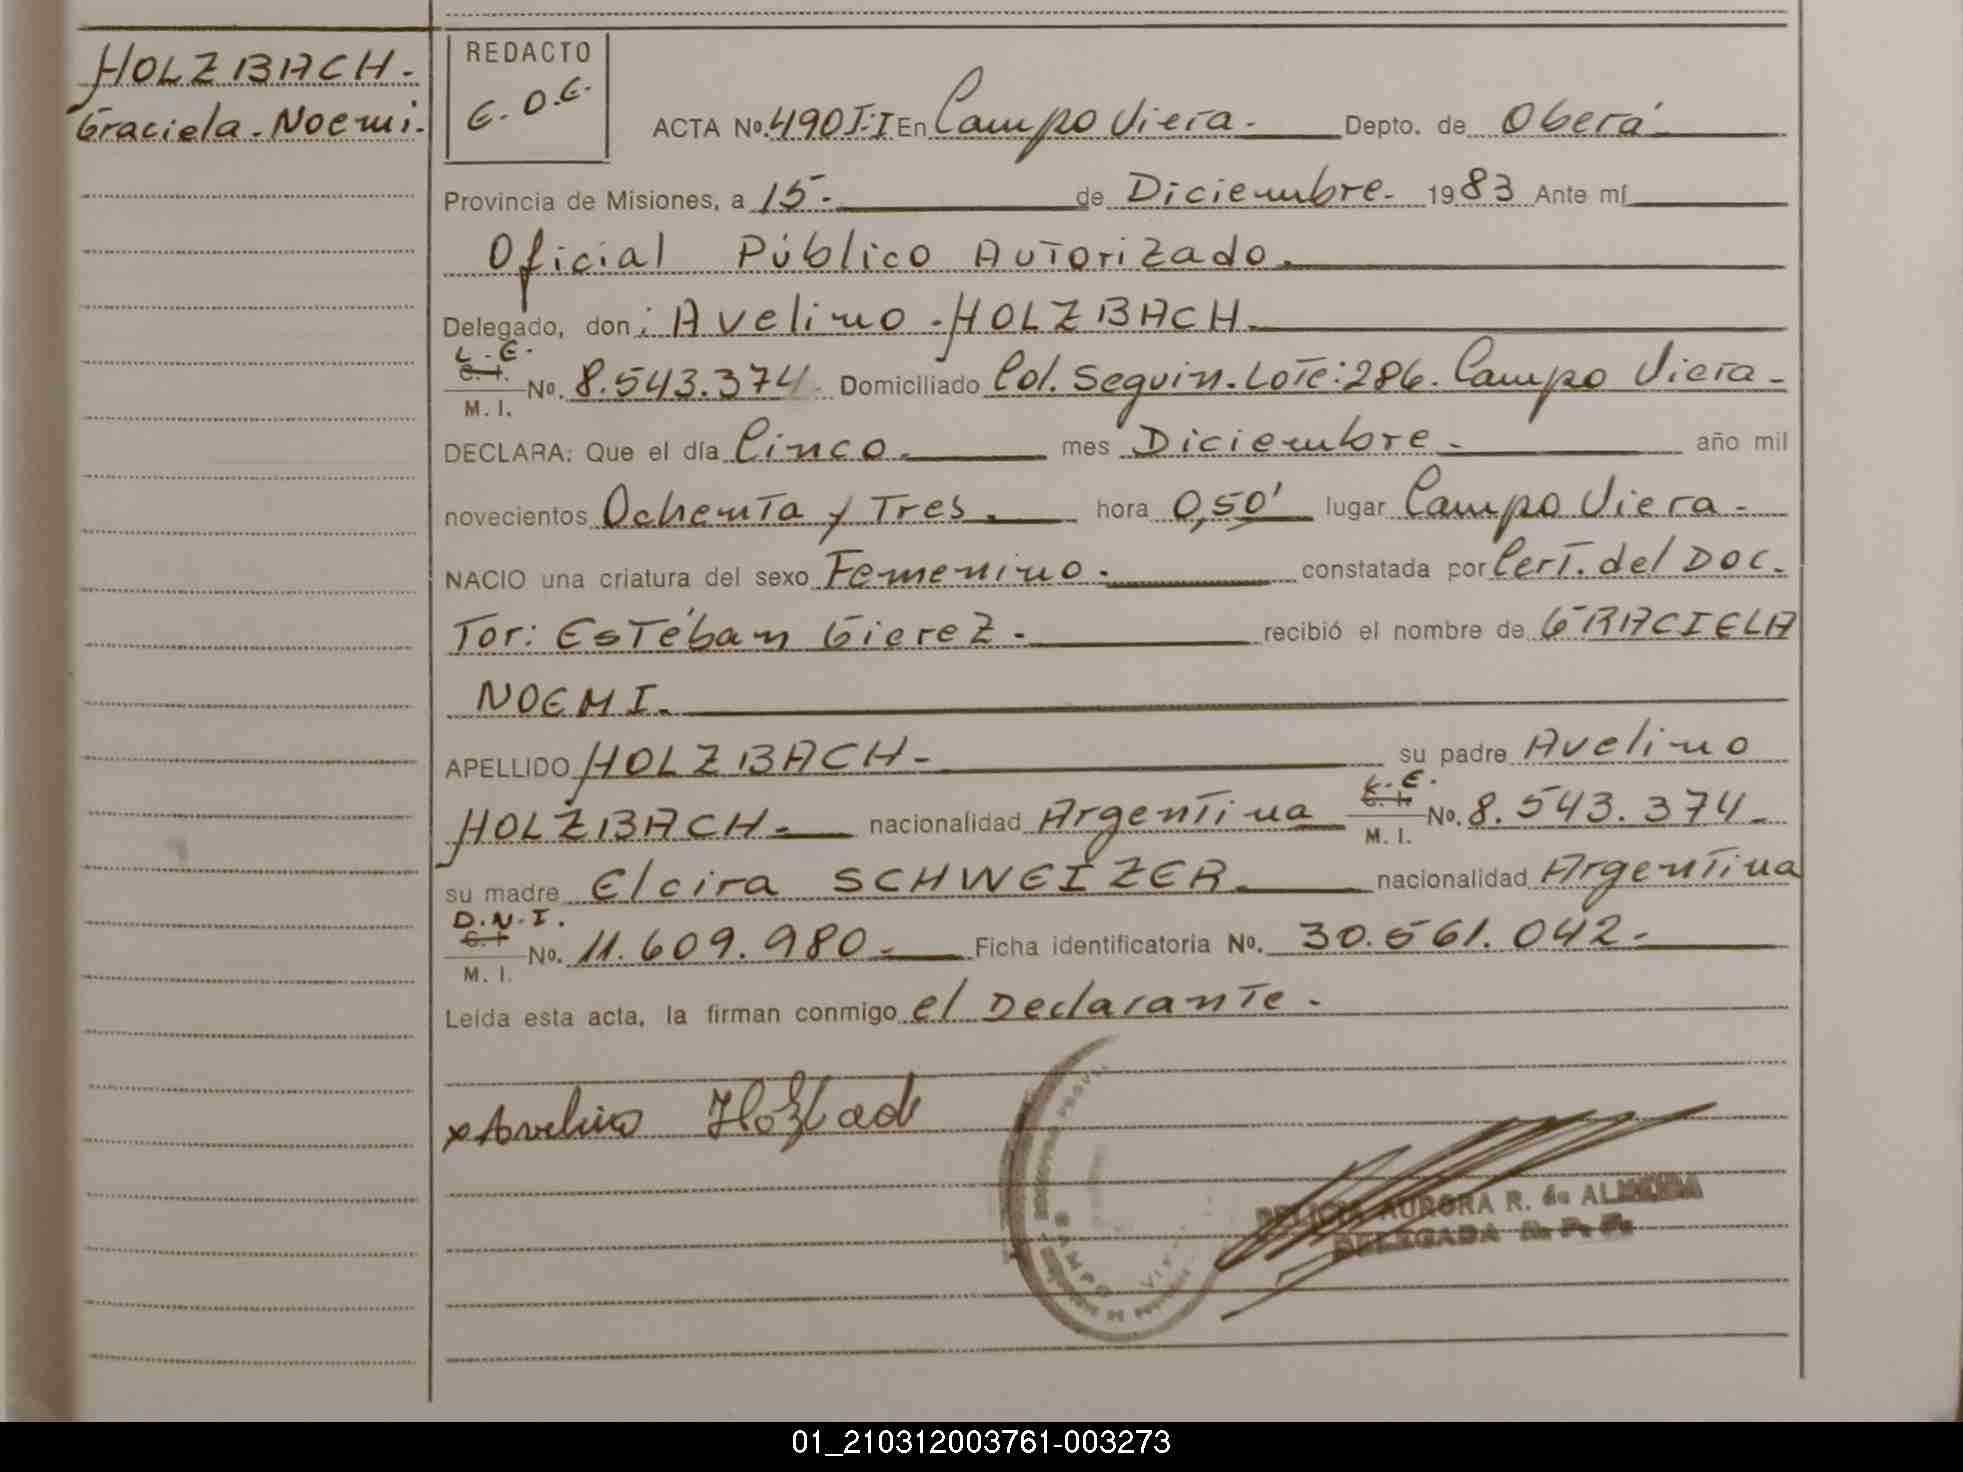 HOLZBACH.
Graciela. Noemi.
REDACTO
E.O.E.
ACTA No. 490 T:I En Campo Viera. Depto. de Oberá
Provincia de Misiones, a 15. de Diciembre. 1983 Ante mí
Oficial Público Autorizado.
Delegado, don: Avelino HOLZBACH.
L.E.
C. I.
M. I.
No. 8.543.374 Domiciliado Col. Seguin. Lote: 286. Campo Viera.
DECLARA: Que el día Cinco. mes Diciembre. año mil
novecientos Ochenta y Tres. hora 0,50' lugar Campo Viera.
NACIO una criatura del sexo Femenino. constatada por Cert. del Doc.
Tor: Estéban Gierez. recibió el nombre de GRACIELA
NOEMI.
APELLIDO HOLZBACH. su padre Avelino
HOLZBACH. nacionalidad Argentina L.E. C. I. M. I. No. 8.543.374.
su madre Elcira SCHWEIZER. nacionalidad Argentina
D.N.I.
C. I
M. I.
No. 11.609.980. Ficha identificatoria No. 30.561.042.
Leida esta acta, la firman conmigo el Declarante.
x Avelino Holzbach
CAMPO VI
DELICIA AURORA R. de ALMEIDA
DELEGADA R. P. P.
01_210312003761-003273